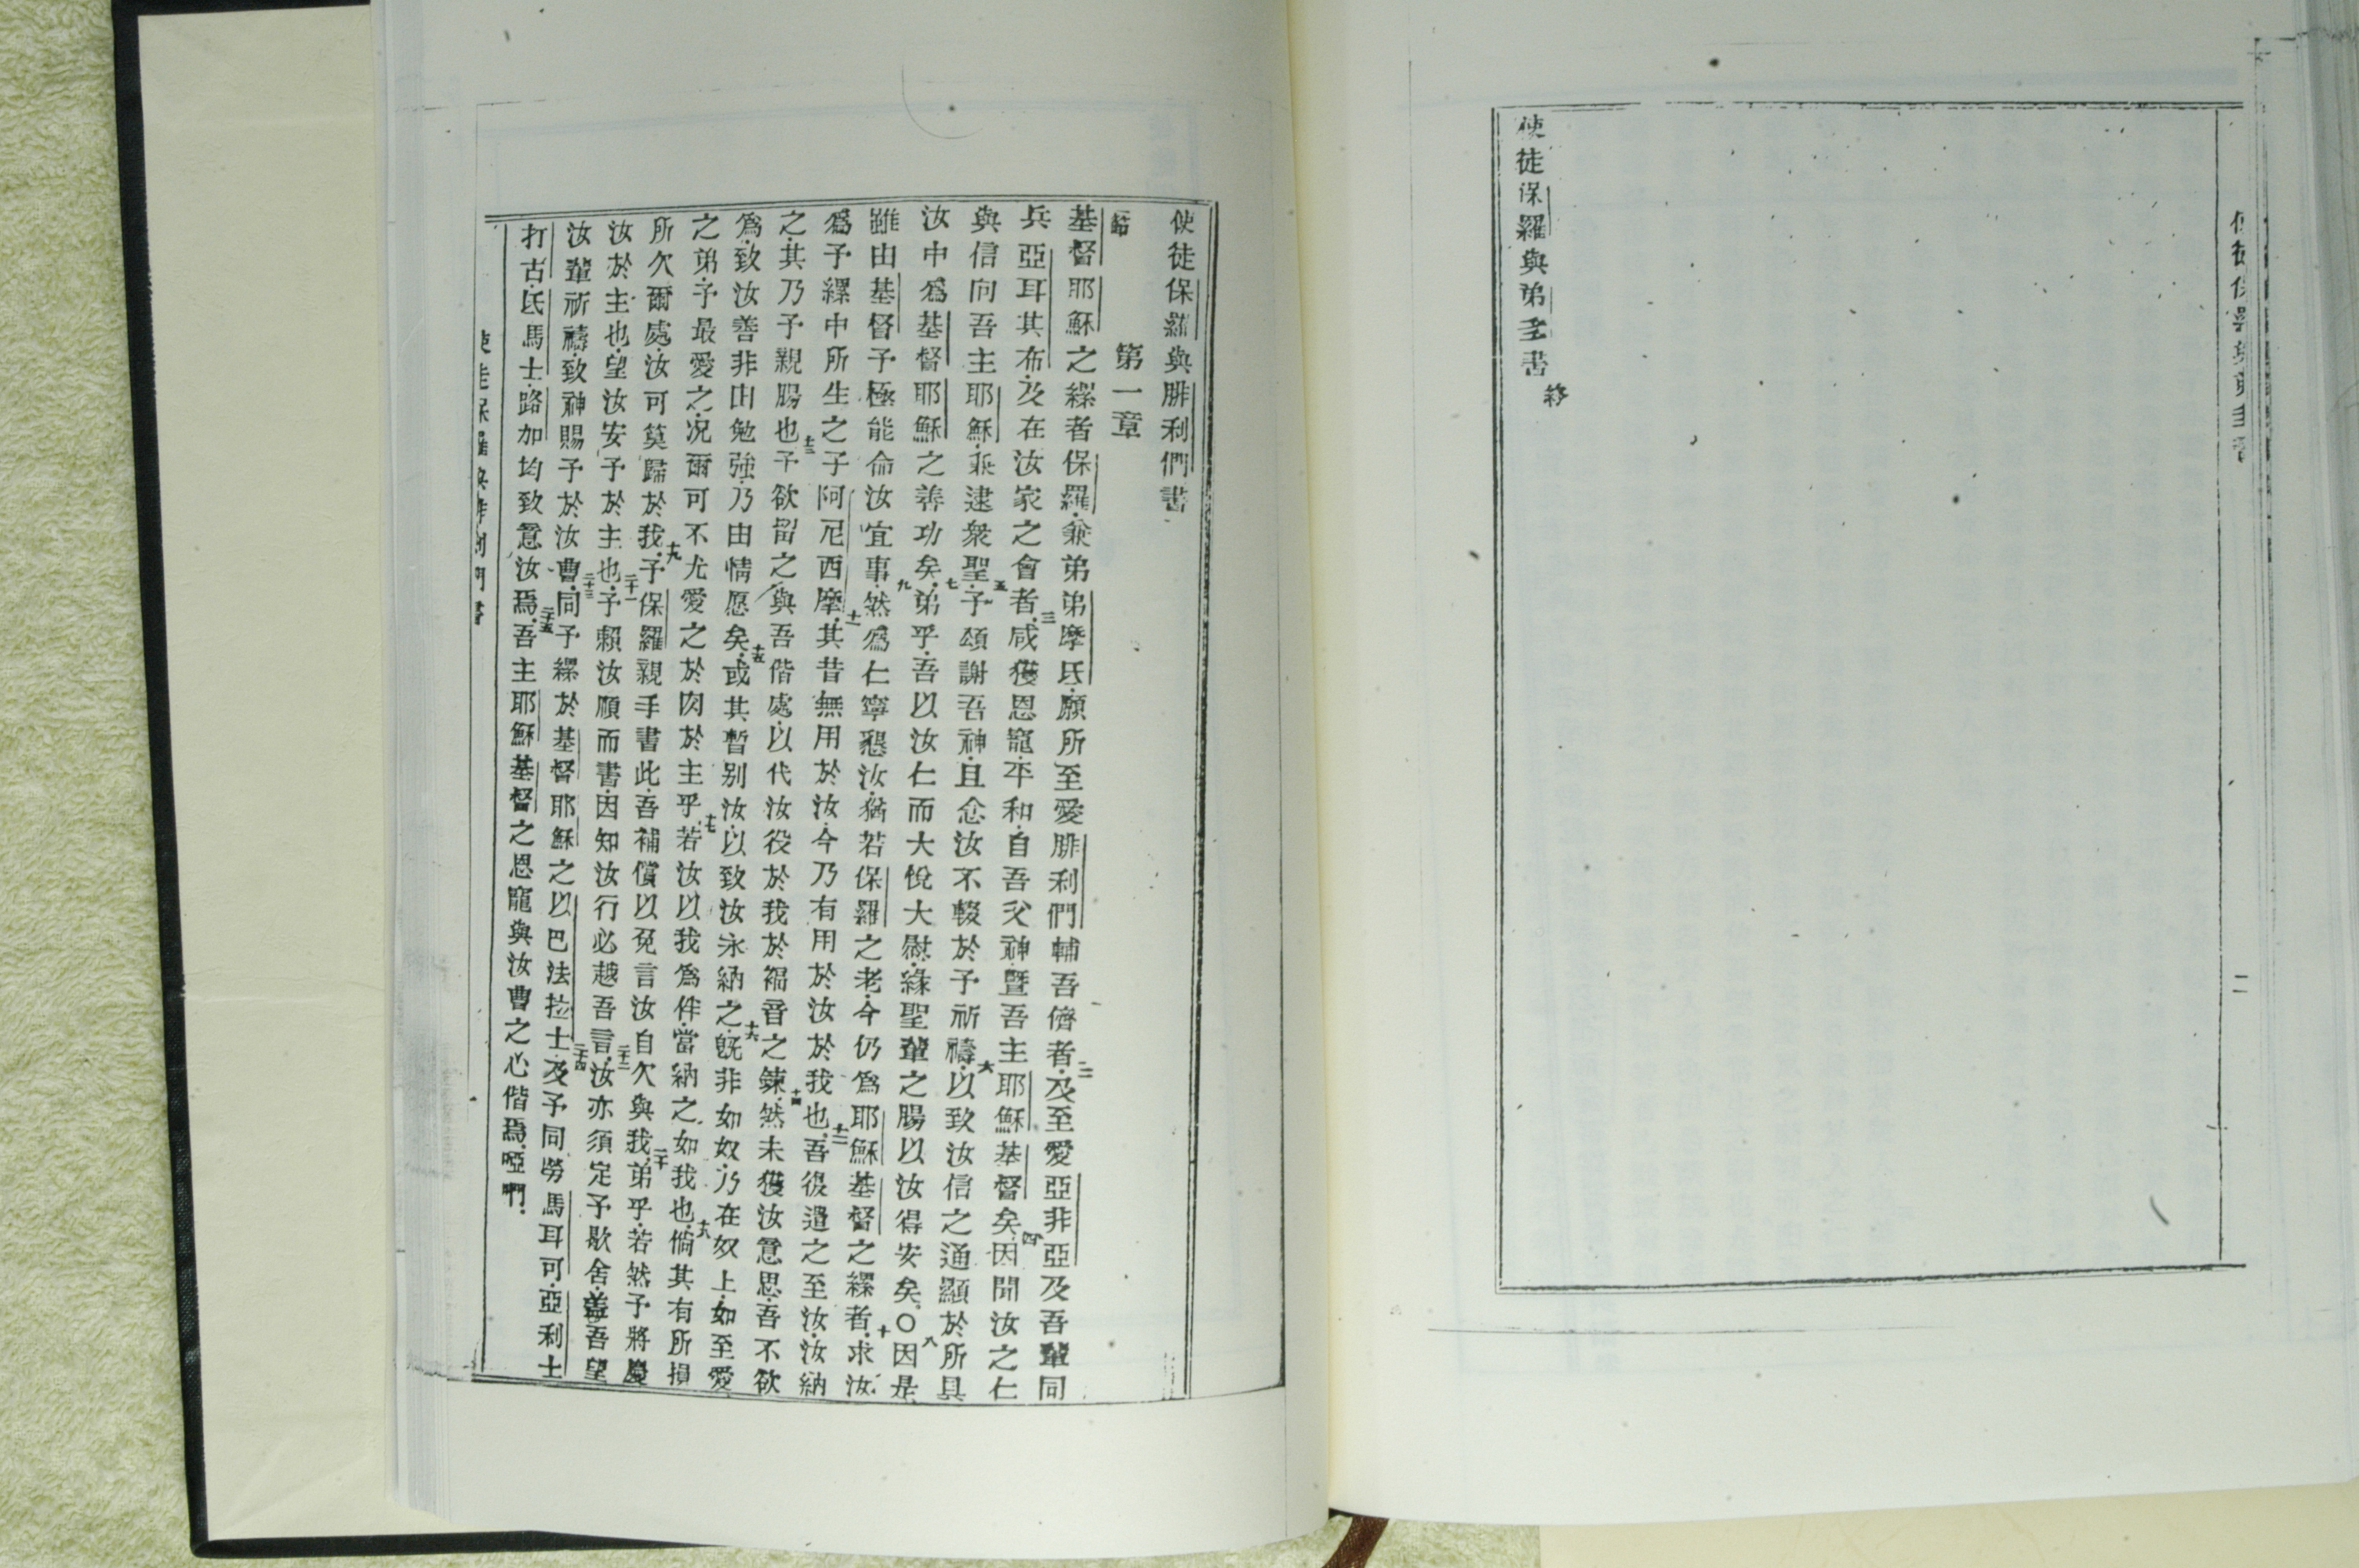 使徒保羅與弟多書
終
二
使徒保羅與腓利們書
節 第一章
基督耶穌之縲者保羅兼弟弟摩氐願所至愛腓利們輔吾儕者二及至愛亞非亞及吾輩同
兵亞耳其布及在汝家之會者三咸獲恩寵平和自吾父神曁吾主耶穌基督矣四因聞汝之仁
與信向吾主耶穌乘逮衆聖五予頌謝吾神且念汝不輟於予祈禱六以致汝信之通顯於所具
汝中爲基督耶穌之善功矣七弟乎吾以汝仁而大悅大慰緣聖輩之腸以汝得安矣〇八因是
雖由基督予極能命汝宜事九然爲仁寧懇汝猶若保羅之老今仍爲耶穌基督之縲者十求汝
爲予縲中所生之子阿尼西摩十一其昔無用於汝今乃有用於汝於我也十二吾後遣之至汝汝納
之其乃予親腸也十三予欲留之與吾偕處以代汝役於我於福音之鍊十四然未獲汝意思吾不欲
爲致汝善非由勉強乃由情愿矣十五或其暫别汝以致汝永納之十六旣非如奴乃在奴上如至愛
之弟予最愛之况爾可不尤愛之於肉於主乎十七若汝以我爲伴當納之如我也十八倘其有所損
所欠爾處汝可筭歸於我十九予保羅親手書此吾補償以免言汝自欠與我二十弟乎若然予將慶
汝於主也望汝安予於主也二十一予賴汝順而書因知汝行必越吾言二十二汝亦須定予歇舍葢吾望
汝輩祈禱致神賜予於汝曹二十三同予縲於基督耶穌之以巴法拉士二十四及予同勞馬耳可亞利士
打古氐馬士路加均致意汝焉二十五吾主耶穌基督之恩寵與汝曹之心偕焉啞啊
使徒保羅與腓利們書